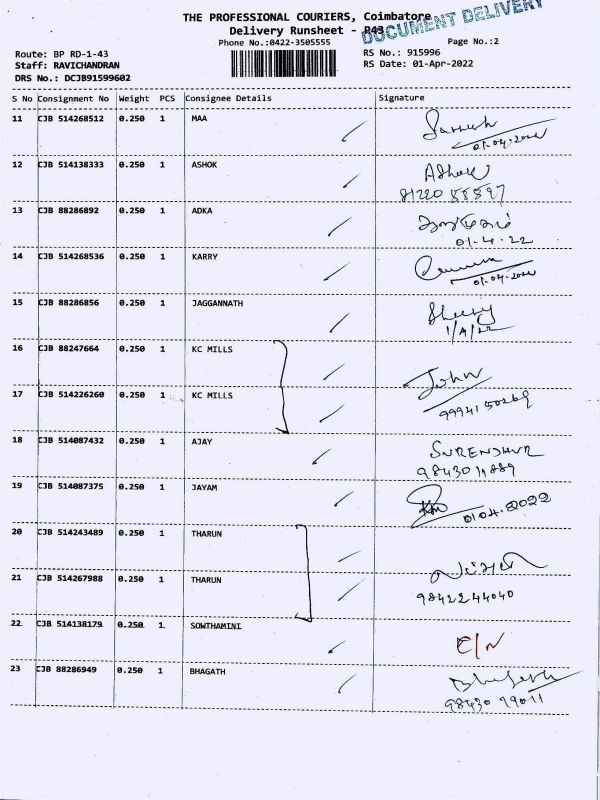 THE PROFESSIONAL COURIERS, Coimbatore
DOCUMENT DELIVERY
Delivery Runsheet - R43
Phone No.:0422-3505555
Page No.:2
Route: BP RD-1-43
RS No.: 915996
Staff: RAVICHANDRAN
RS Date: 01-Apr-2022
DRS No.: DCJB91599602
S No Consignment No Weight PCS Consignee Details Signature
11 CJB 514268512 0.250 1 MAA
01.04.2022
12 CJB 514138333 0.250 1 ASHOK Ashok
81220 58897
13 CJB 88286892 0.250 1 ADKA
01.4.22
14 CJB 514268536 0.250 1 KARRY
01.04.2022
15 CJB 88286856 0.250 1 JAGGANNATH
1/4/22
16 CJB 88247664 0.250 1 KC MILLS
John
17 CJB 514226260 0.250 1 KC MILLS
9994150269
18 CJB 514087432 0.250 1 AJAY
9843011889
19 CJB 514087375 0.250 1 JAYAM
01.04.2022
20 CJB 514243489 0.250 1 THARUN
21 CJB 514267988 0.250 1 THARUN
9842244040
22 CJB 514138179 0.250 1 SOWTHAMINI E/N
23 CJB 88286949 0.250 1 BHAGATH
98430 99011